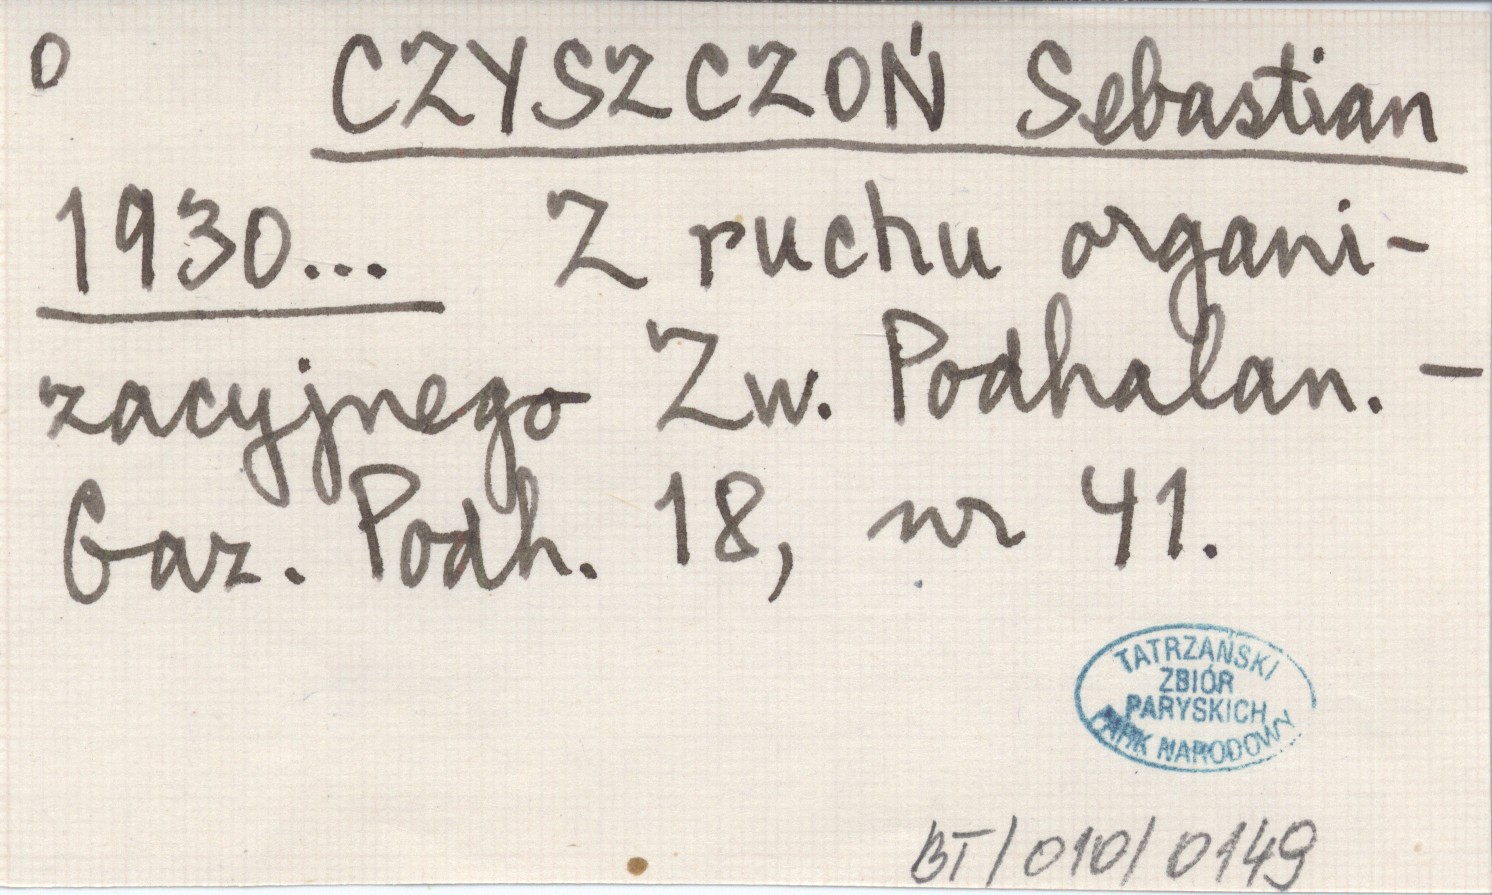 O CZYSZCZOŃ Sebastian
1930... Z ruchu organi-
zacyjnego Zw. Podhalan. —
Gaz. Podh. 18, nr 41.
TATRZAŃSKI
ZBIÓR
PARYSKICH
PARK NARODOWY
BT/010/0149